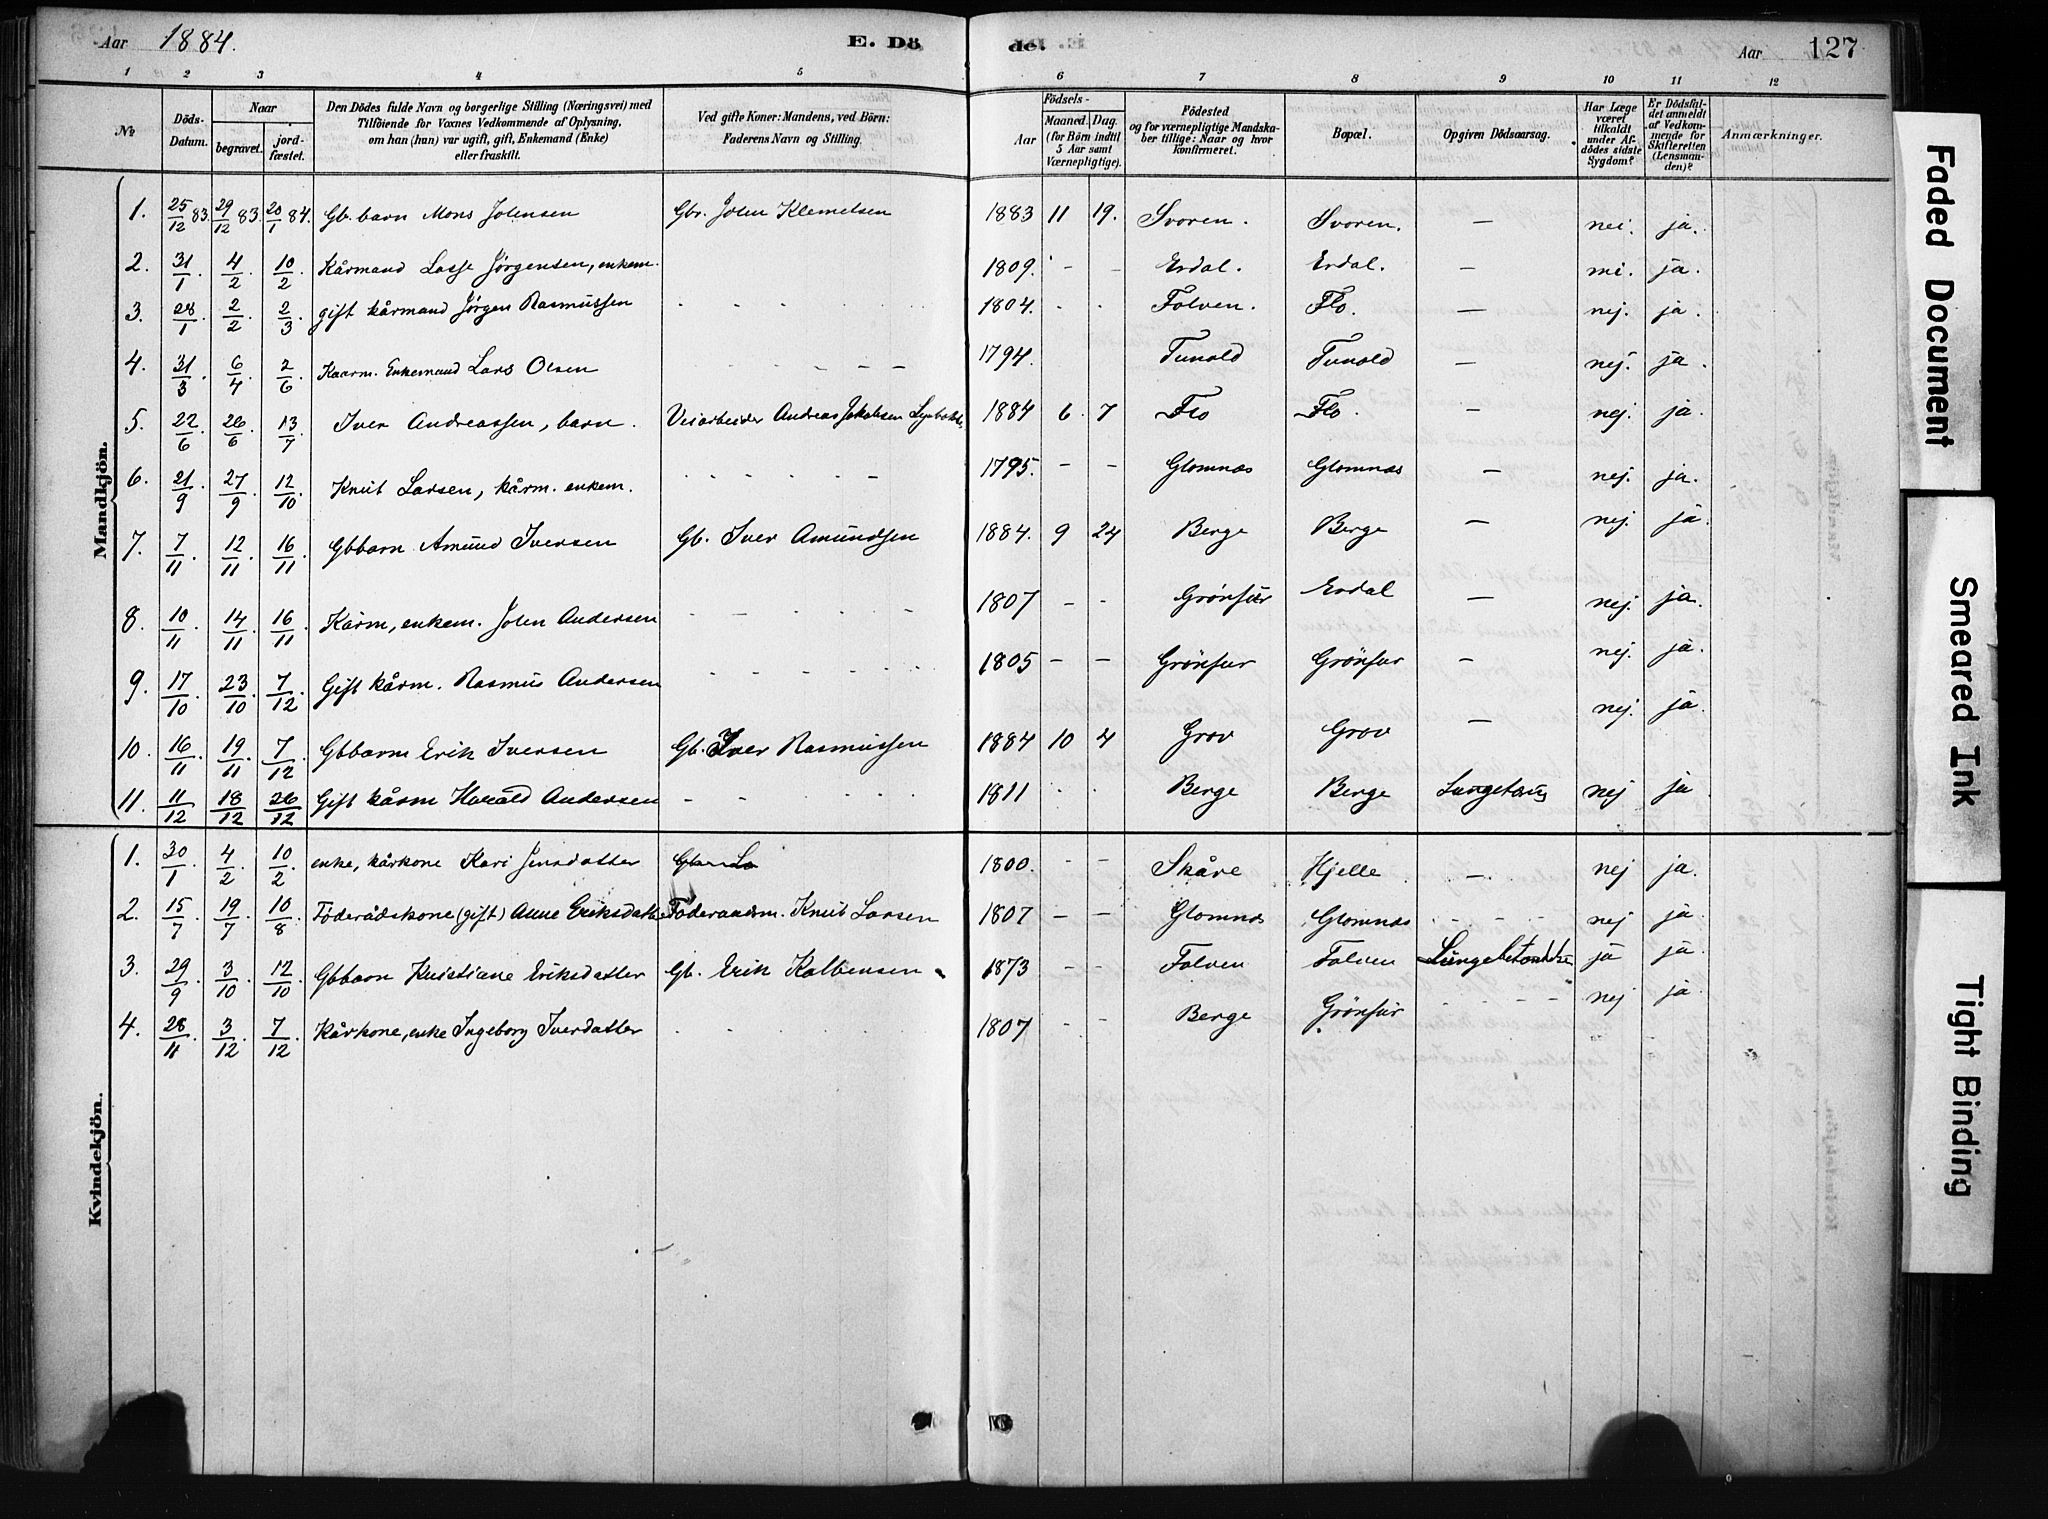 Aar 1884. E. Dö de. Aar 127
1 2 3 4 5 6 7 8 9 10 11 12
No
Döds-Datum.
Naar
begravet.
jord-fæstet.
Den Dödes fulde Navn og borgerlige Stilling (Næringsvei) med
Tilföiende for Voxnes Vedkommende af Oplysning,
om han (hun) var ugift, gift, Enkemand (Enke)
eller fraskilt.
Ved gifte Koner: Mandens, ved Börn:
Faderens Navn og Stilling.
Födsels-
Aar
Maaned. Dag.
(for Börn indtil
5 Aar samt
Værnepligtige).
Födested
og for værnepligtige Mandska-
ber tillige: Naar og hvor
konfirmeret.
Bopæl.
Opgiven Dödsaarsag.
Har Læge
været
tilkaldt
under Af-
dödes sidste
Sygdom?
Er Dödsfal-
det anmeldt
af Vedkom-
mende for
Skifteretten
(Lensman-
den)?
Anmærkninger.
Mandkjön.
1. 25/12 83. 29/12 83. 20/1 84. Gb. barn Mons Jolensen Gbr. Jolen Klemetsen 1883 11 19. Svoren. Svoren. — nei. ja.
2. 31/1. 4/2. 10/2. Kårmand Lasse Jørgensen, enkem. 1809. - - Erdal. Erdal. — ja.
3. 28/1. 2/2. 2/3. gift kårmand Jörgen Rasmussen 1804. Folven. Flo. — nej. ja.
4. 31/3. 6/4. 2/6. Kaarm. Enkemand Lars Olsen 1794. Tunold Tunold — nej. ja.
5. 22/6. 26/6. 13/7. Iver Andreassen, barn. Veiarbeider Andreas Jakobsen 1884 6 7 Flo Flo. — nej. ja.
6. 21/9. 27/9. 12/10. Knut Larsen, kårm. enkem. 1795. — — Glomnæs Glomnæs — nej. ja.
7. 7/11. 12/11. 16/11. Gbbarn Amund Iversen Gb. Iver Amundsen 1884. 9 24 Berge Berge — nej. ja.
8. 10/11. 14/11. 16/11. Kårm, enkem. Jolen Andersen 1807 — - Grönfur Erdal — nej. ja.
9. 17/10. 23/10. 7/12. Gift kårm. Rasmus Andersen 1805 — — Grönfur Grönfur — nej. ja.
10. 16/11. 19/11. 7/12. Gbbarn Erik Iversen Gb. Iver Rasmussen 1884 10 4 Grov Grov — nej. ja.
11. 11/12. 18/12. 26/12. Gift kårm Harald Andersen 1811 Berge Berge nej ja
Kvindekjön.
1. 30/1. 4/2. 10/2. enke, kårkone Kari Jensdatter 1800. - - Skåre Hjelle — nej ja.
2. 15/7. 19/7. 10/8. Föderådskone (gift) Anne Eriksdatter Föderaadsm. Knut Larsen 1807 — — Glomnæs Glomnæs nej ja.
3. 29/9. 3/10. 12/10. Gbbarn Kristiane Eriksdatter Gb. Erik Kolbensen 1873 - - Folven Folven ja ja.
4. 28/11. 3/12. 7/12. Kårkone, enke Ingeborg Iverdatter 1807 - - Berge Grönfur nej ja.
Faded Document
Smeared Ink
Tight Binding